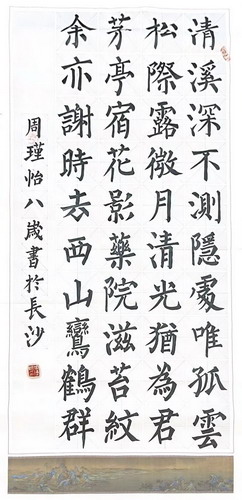 清溪深不測隱處唯孤雲
松際露微月清光猶為君
茅亭宿花影藥院滋苔紋
余亦謝時去西山鸞鶴群
周瑾怡八歲書於長沙